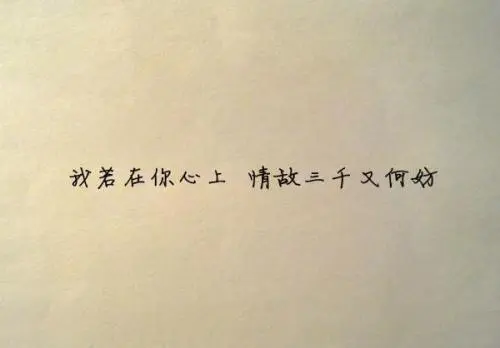 我若在你心上 情故三千又何妨